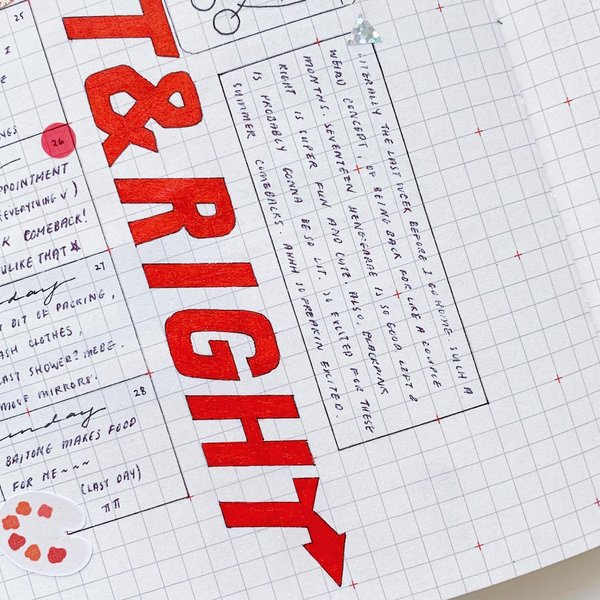 25
I
NGS
26
PPOINTMENT
(EVERYTHING ✓)
R COMEBACK!
ULIKE THAT
27
day
BIT OF PACKING,
ASH CLOTHES,
LAST SHOWER? MEBE.
MOVE MIRRORS!
28
nday
BAITONG MAKES FOOD
FOR ME~~~
(LAST DAY)
ㅠㅠ
T & RIGHT
LITERALLY THE LAST WEEK BEFORE I GO HOME SUCH A
WEIRD CONCEPT, OF BEING BACK FOR LIKE A COUPLE
MONTHS. SEVENTEEN HENGGARAE IS SO GOOD LEFT &
RIGHT IS SUPER FUN AND CUTE. ALSO, BLACKPINK
IS PROBABLY GONNA BE SO LIT. SO EXCITED FOR THESE
SUMMER COMEBACKS. AHHH SO FREAKIN EXCITED.